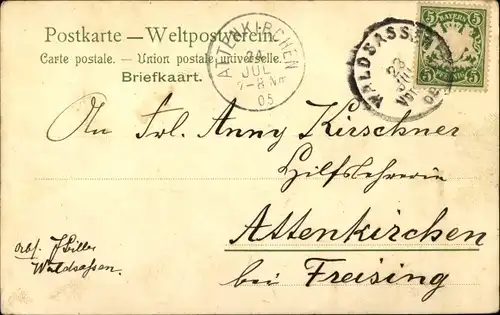 Postkarte — Weltpostverein.
Carte postale. — Union postale universelle.
Briefkaart.
ATTENKIRCHEN
24
JUL
7-8 Nm
05
WALDSASSEN
23
JUL
Vor
05
5 5
BAYERN
PFENNIG
5 5
An Frl. Anny Kirschner
Hilfslehrerin
Attenkirchen
bei Freising
Waldsassen.